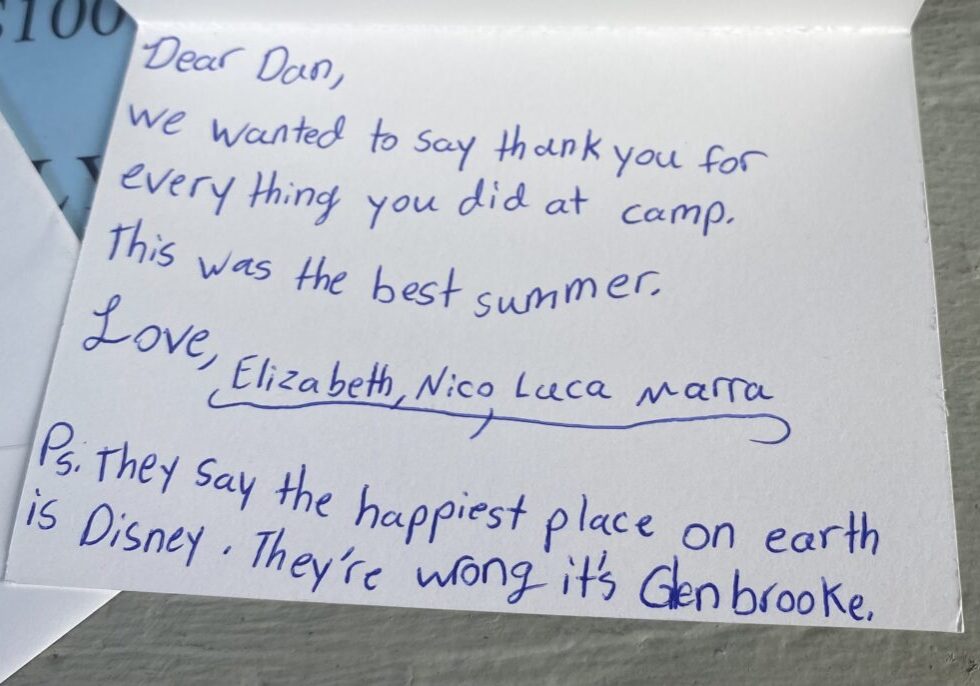 $100
Dear Dan,
we wanted to say thank you for
every thing you did at camp.
This was the best summer.
Love,
Elizabeth, Nico, Luca Marra
Ps. They say the happiest place on earth
is Disney. They're wrong it's Glenbrooke.